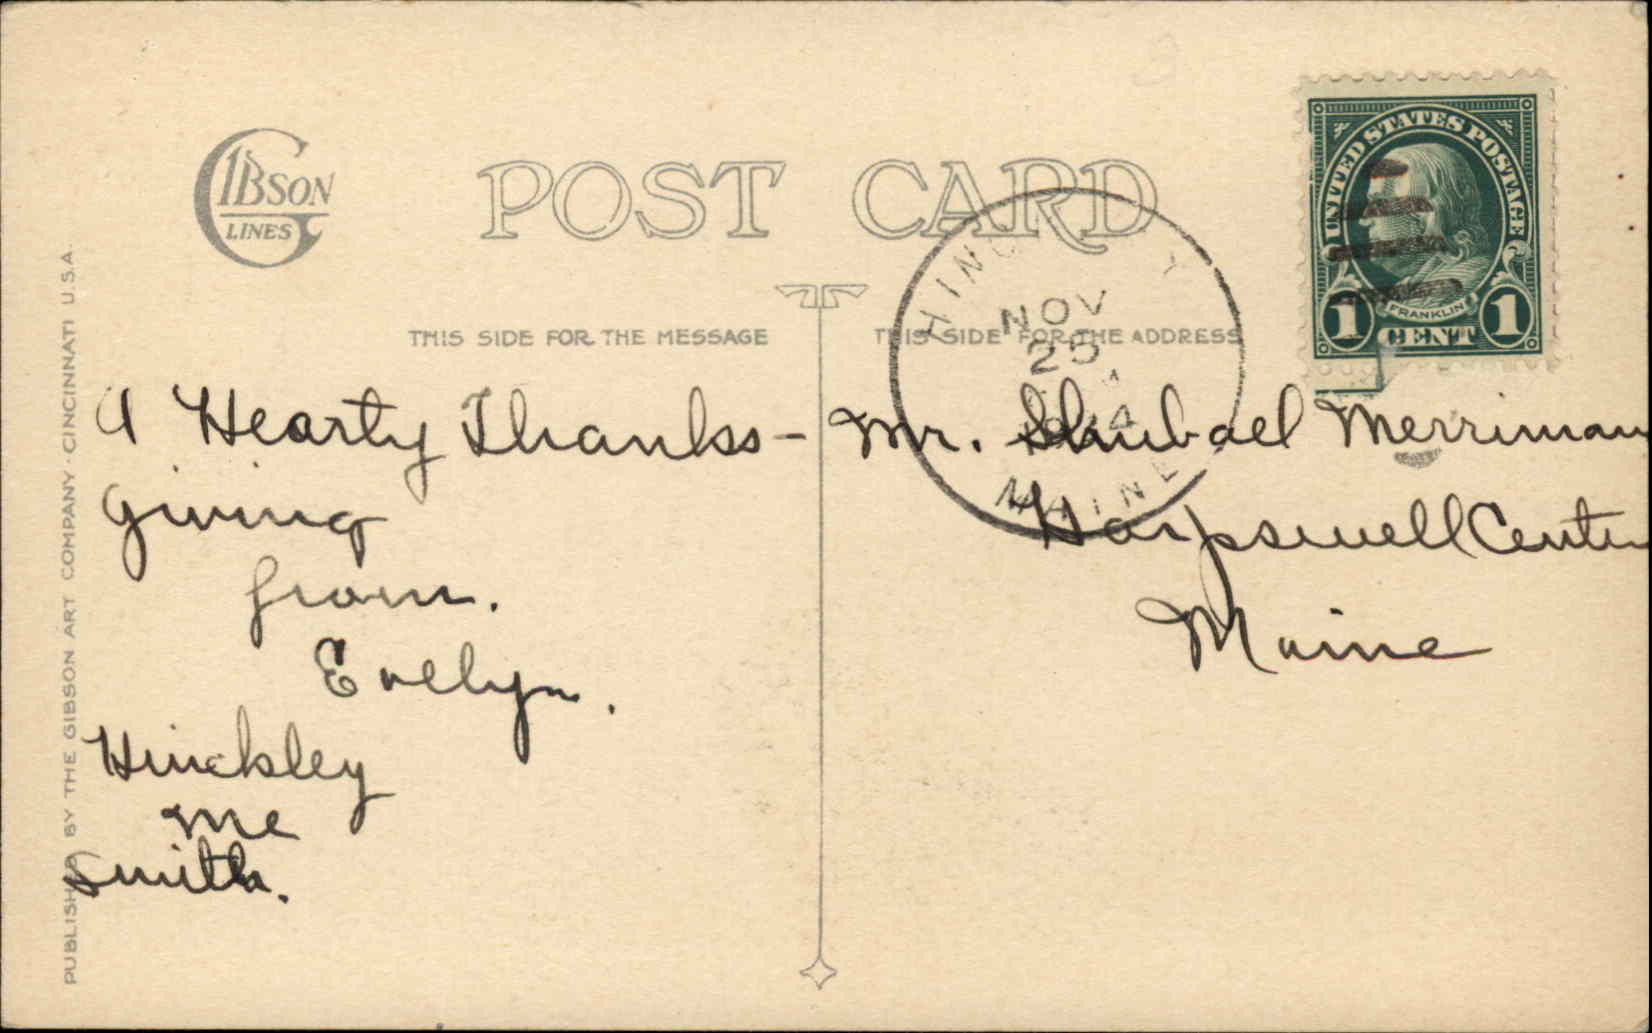 GIBSON
LINES
POST CARD
UNITED STATES POSTAGE
FRANKLIN
1 CENT 1
HINC Y
NOV
MAINE
THIS SIDE FOR THE MESSAGE
THIS SIDE FOR THE ADDRESS
A Hearty Thanks-
giving
from.
Evelyn.
Hinckley
Me
Smith.
Mr. Shubael Merriman
Harpswell Center
Maine
PUBLISHED BY THE GIBSON ART COMPANY CINCINNATI U.S.A.